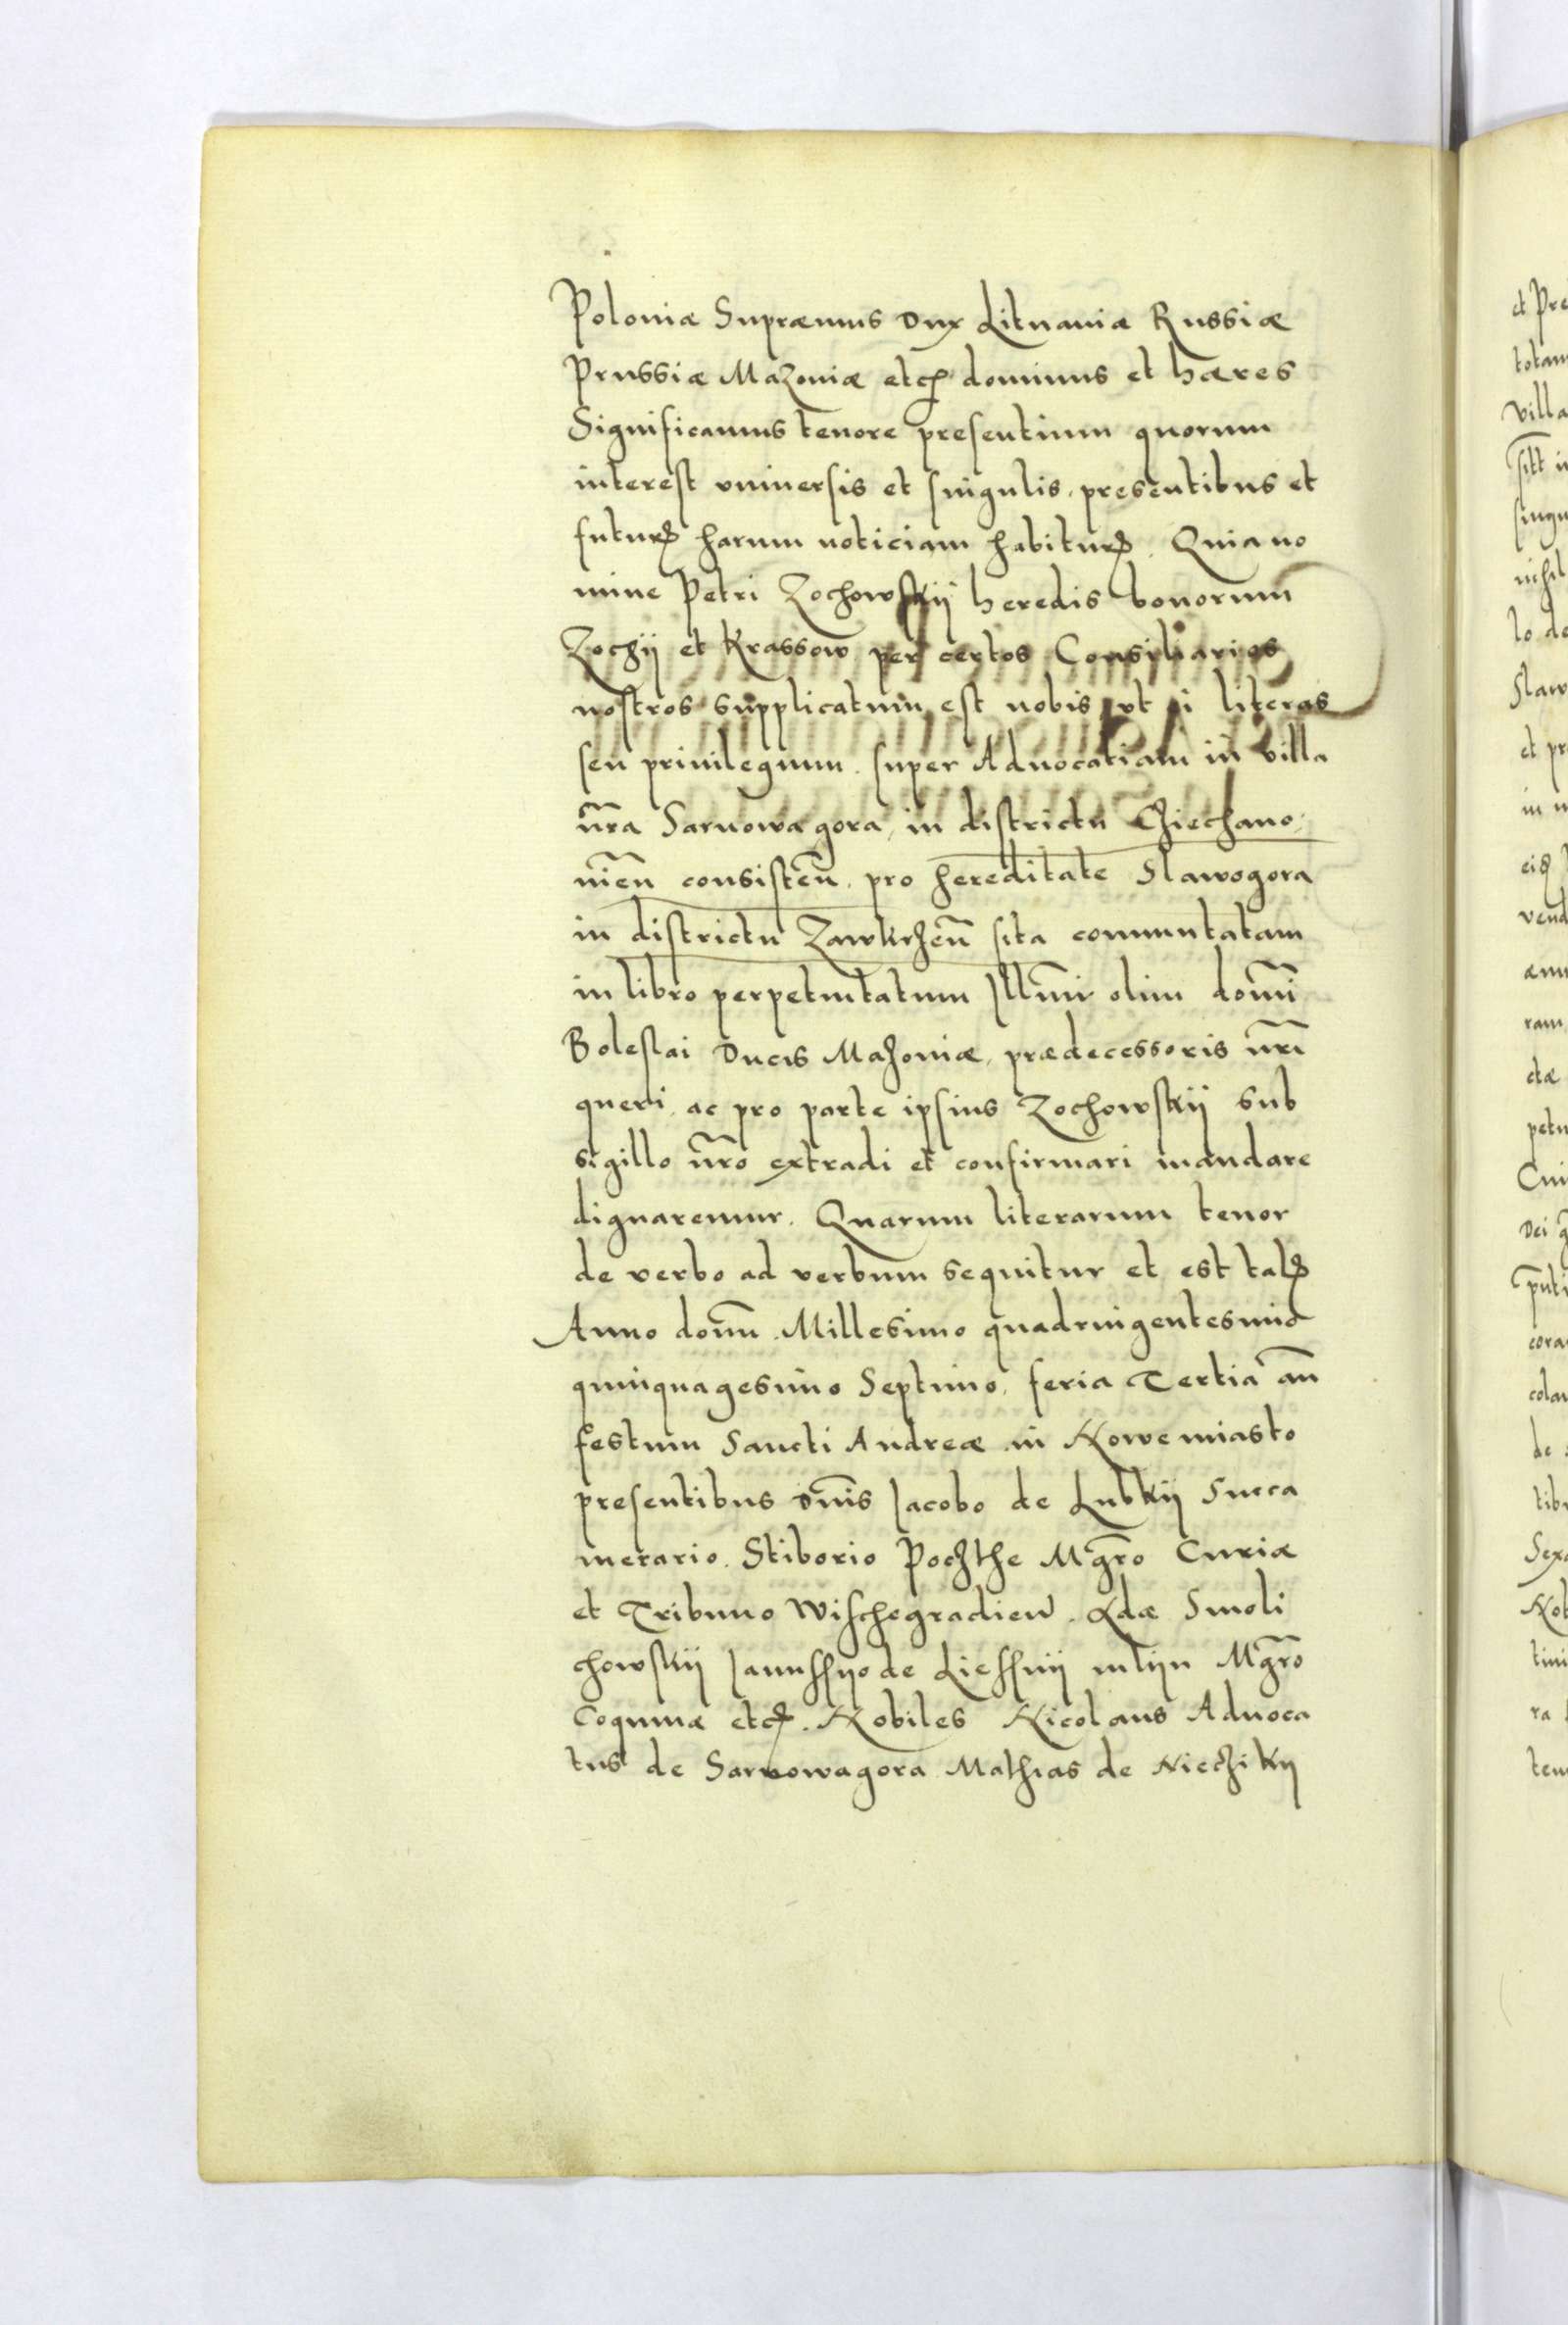 Poloniæ Supræmus Dux Lituaniæ Russiæ
Prussiæ Mazoniæ etcꝫ dominus et hæres
Significamus tenore presentium quorum
interest vniuersis et singulis, presentibus et
futurꝭ harum noticiam habiturꝭ. Quia no
mine Petri Zochowskij heredis bonorum
Zochij et Krassow per certos Consiliarios
nostros supplicatum est nobis vt i literas
seu priuilegium super Aduocatiam in villa
nr̄a Sarnowagora, in districtu Cziechano:
nien̄ consisten̄. pro hereditate Slawogora
in districtu Zawkrzen̄ sita commutatam
in libro perpetuitatum Illmi olim domi
Boleslai Ducis Mazoniæ, prædecessoris nr̄i
queri, ac pro parte ipsius Zochowskij sub
sigillo nr̄o extradi et confirmari mandare
dignaremur. Quarum literarum tenor
de verbo ad verbum sequitur et est talꝭ
Anno domi. Millesimo quadringentesimo
quinquagesimo Septimo, feria Tertia an̄
festum Sancti Andreæ in Nowemiasto
presentibus Dnis Jacobo de Lubkij Succa
merario. Stiborio Poczthe Mgr̄o Curiæ
et Tribuno Wischegradien̄. Adæ Smoli
chowskij Janussijo de Liessnij Mgr̄o
Coquinæ etcꝫ. Nobiles Nicolaus Aduoca
tus de Sarnowagora Mathias de Niechikij
et Pre
totam
villa
singu
nihil
lo de
Slaw
et pr
vend
ram
ctæ
petu
Cui
Dei
cora
colau
de
tibu
Sexa
Nob
tini
ra